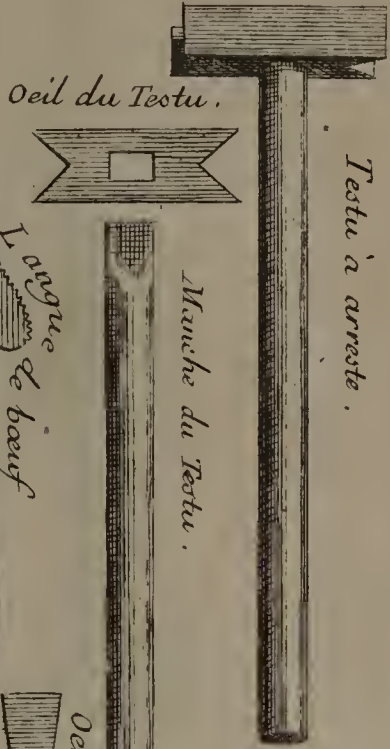 Oeil du Testu.
Testu à arreste.
Manche du Testu.
Langue de bœuf
Oe